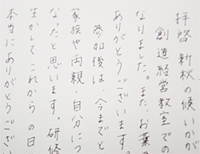 拝啓 新秋の候いかが
創造経営教室での
なりました。また、お葉
ありがとうございます。
参加後は、今までと
家族や両親、自分につ
なったと思います。研修
生かしてこれからの日
本当にありがとうござ